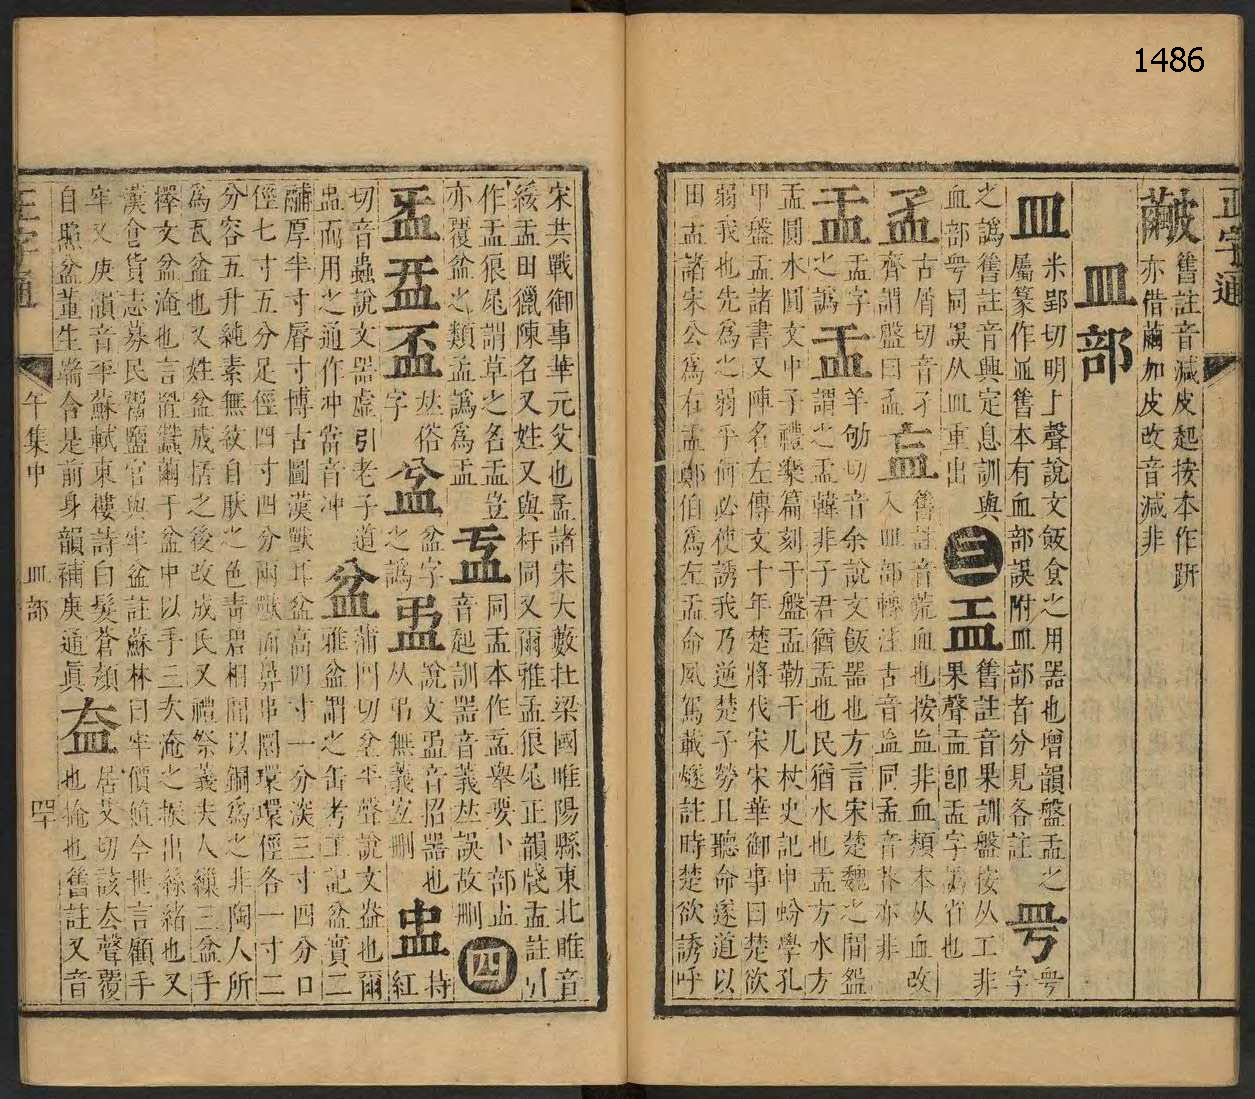 1486
正字通
皾舊註音減皮起按本作趼
亦借繭加皮改音減非
皿部
皿米郢切明上聲說文飯食之用器也增韻盤盂之
屬篆作皿舊本有血部誤附皿部者分見各註
甹字
之譌舊註音興定息訓與
血部甹同誤从血重出
三
舊註音果訓盤按从工非
果聲盂卽盂字譌省也
古屑切音孑
齊謂盤曰孟
衁舊註音荒血也按衁非血類本从血改
入皿部轉注古音衁同孟音杯亦非
盂盂字
之譌
盂羊劬切音余說文飯器也方言宋楚魏之間盌
謂之盂韓非子君猶盂也民猶水也盂方水方
盂圓水圓文中子禮樂篇刻于盤盂勒于几杖史記田蚡學孔
甲盤盂諸書又陣名左傳文十年楚將伐宋宋華御事曰楚欲
弱我也先為之弱乎何必使誘我乃逆楚子勞且聽命遂道以
田孟諸宋公為右盂鄭伯為左盂命夙駕載燧註時楚欲誘呼
宋共戰御事華元父也孟諸宋大藪在梁國睢陽縣東北睢音
綏盂田獵陳名又姓又與杅同又爾雅盂狼尾正韻牋盂註引
作孟狼尾謂草之名盂豈同盂本作盓舉要小部盂
亦覆盆之類孟譌為盂
音起訓器音義𠀤誤故刪
四
𠀤俗
字
盆字
之譌
說文𥁓音招器也
从弔無義宜刪
盅持
紅
切音蟲說文器虛引老子道
盅而用之通作冲當音冲
盆蒲四切坌平聲說文盎也爾
雅盆謂之缶考工記盆實二
鬴厚半寸脣寸博古圖漢獸耳盆高四寸一分深三寸四分口
徑七寸五分足徑四寸四分兩獸面鼻串圜環環徑各一寸二
分容五升純素無紋自肰之色靑碧相間以銅為之非陶人所
為瓦盆也又姓盆成括之後改成氏又禮祭義夫人繅三盆手
釋文盆淹也言置蠶繭于盆中以手三次淹之振出絲緒也又
漢食貨志募民鬻鹽官與牢盆註蘇林曰牢價値今世言顧手
牢又庚韻音平蘇軾東樓詩白髮蒼顏
自照盆董生端合是前身韻補庚通眞
盇居艾切該去聲覆
也掩也舊註又音
正字通
午集中
皿部
四十